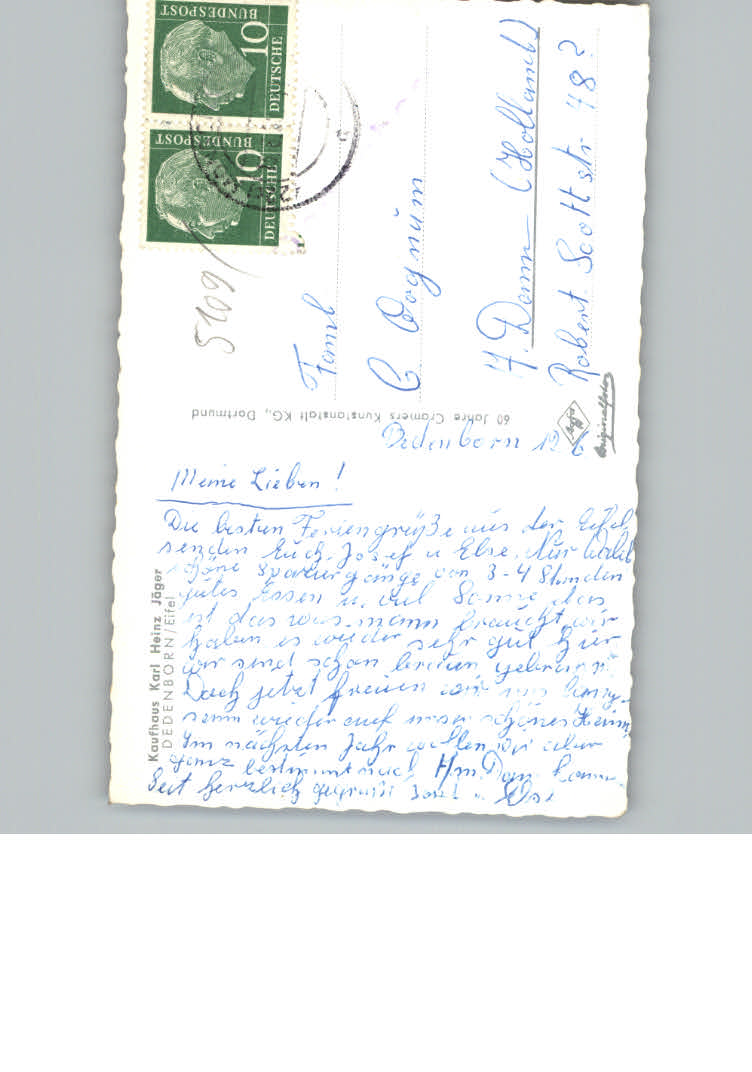 Dedenborn 12.6
Meine Lieben!
Die besten Feriengrüße aus der Eifel
senden Euch Josef u Else. Nur
schöne Spaziergänge von 3-4 Stunden
gutes Essen u. viel Sonne, das
ist das was mann braucht, wir
haben es wieder sehr gut hier
wir sind schon braun gebrannt
Doch jetzt freuen wir uns
wieder auf unser schönes Heim
Im nächsten Jahr wollen wir aber
ganz bestimmt nach Am. Dam
Seit herzlich gegrüßt Josef u Else
Kaufhaus Karl Heinz Jäger
DEDENBORN/Eifel
60 Jahre Cramers Kunstanstalt KG., Dortmund
Agfa
Originalfoto
5109/
Faml
C.
A. Damm (Holland)
Robert Scott str 48?
DEUTSCHE
BUNDESPOST
10
DEUTSCHE
BUNDESPOST
10